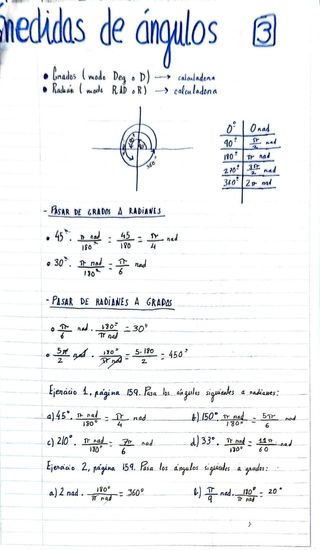 medidas de ángulos 3
• Grados (modo Deg o D) → calculadora
• Radián (modo RAD o R) → calculadora
0° 0 rad
90° π/2 rad
180° π rad
270° 3π/2 rad
360° 2π rad
360°
- PASAR DE GRADOS A RADIANES
• 45° · π rad/180° = 45/180 = π/4 rad
• 30° · π rad/180° = π/6 rad
- PASAR DE RADIANES A GRADOS
• π/6 rad · 180°/π rad = 30°
• 5π/2 rad · 180°/π rad = 5·180/2 = 450°
Ejercicio 1, página 159. Pasa los ángulos siguientes a radianes:
a) 45° · π rad/180° = π/4 rad b) 150° · π rad/180° = 5π/6 rad
c) 210° · π rad/180° = 7π/6 rad d) 33° · π rad/180° = 11π/60 rad
Ejercicio 2, página 159. Pasa los ángulos siguientes a grados:
a) 2 rad · 180°/π rad = 360° b) π/9 rad · 180°/π rad = 20°